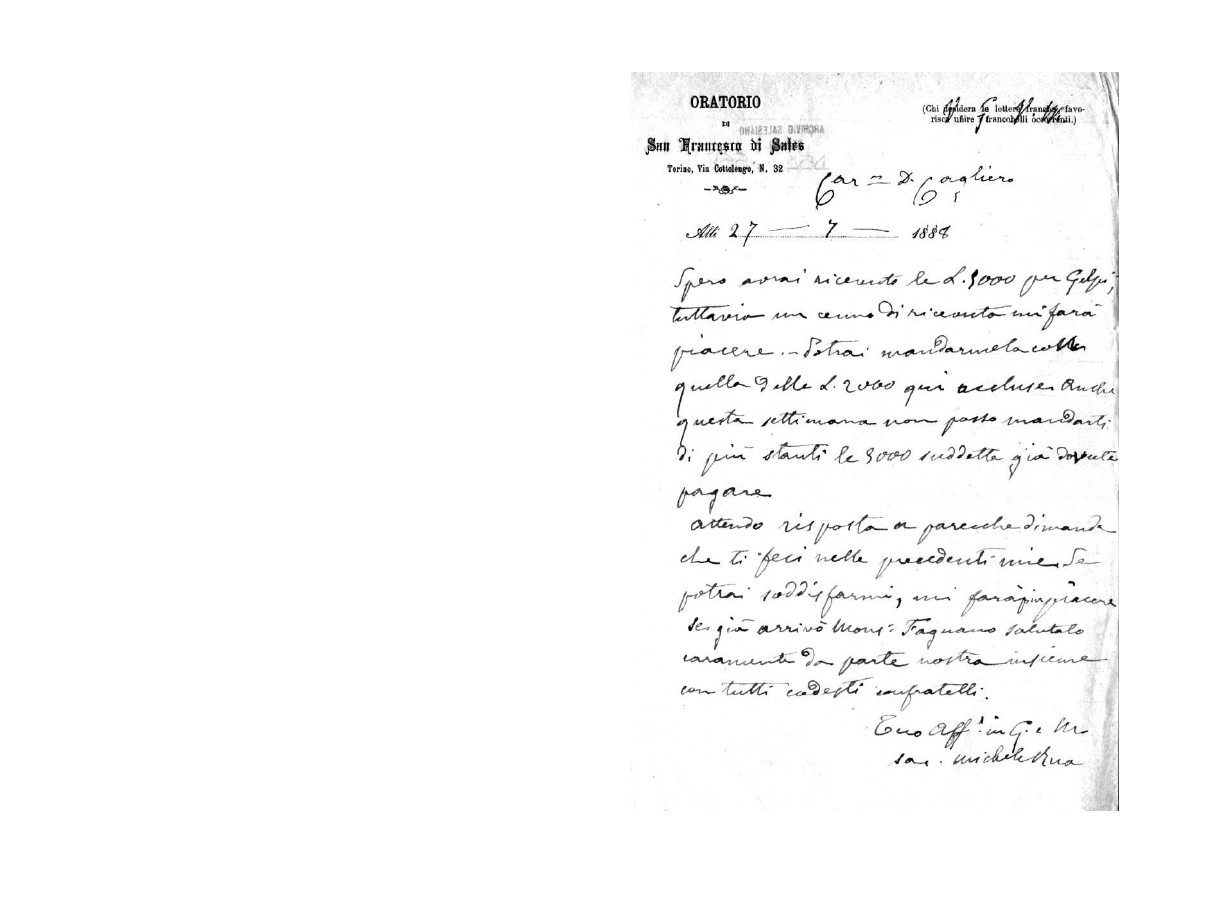 ORATORIO
DI
San Francesco di Sales
Torino, Via Cottolengo, N. 32
(Chi desidera le lettere franche, favo-
risca unire i francobolli occorrenti.)
ARCHIVIO SALESIANO
Car.mo D. Cagliero
Alli 27 — 7 — 1888
Spero avrai ricevuto le L. 3000 per
tuttavia un cenno di ricevuta mi farà
piacere. - Potrai mandarmela colla
quella delle L. 2000 qui accluse. Anche
questa settimana non posso mandarti
di più stanti le 3000 suddette già dovute
pagare
Attendo risposta a parecchie dimande
che ti feci nelle precedenti mie. Se
potrai soddisfarmi, mi farai piacere
Se già arrivò Mons.r Fagnano salutalo
caramente da parte nostra insieme
con tutti codesti confratelli.
Tuo Aff. in G. e M.
Sac. Michele Rua